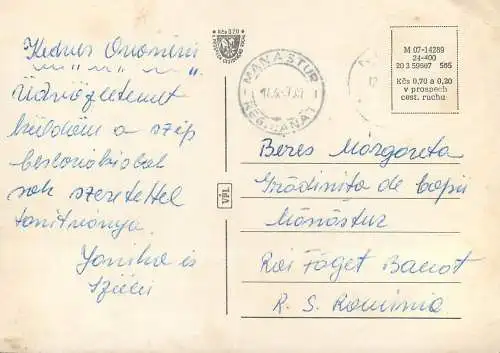 Kedves Ononéni
Üdvözletemet
küldöm a szép
beszterceből
sok szeretettel
tanítványa.
Janika és
Szülei
Kčs 0,20
MANASTUR
REG. BANAT
VPL
M 07-14289
24-400
20 3 59507 565
Kčs 0,70 a 0,20
v prospech
cest. ruchu
Beres Margareta
Grădinița de Copii
Mănăștur
Rai Făget Banat
R. S. Romînia